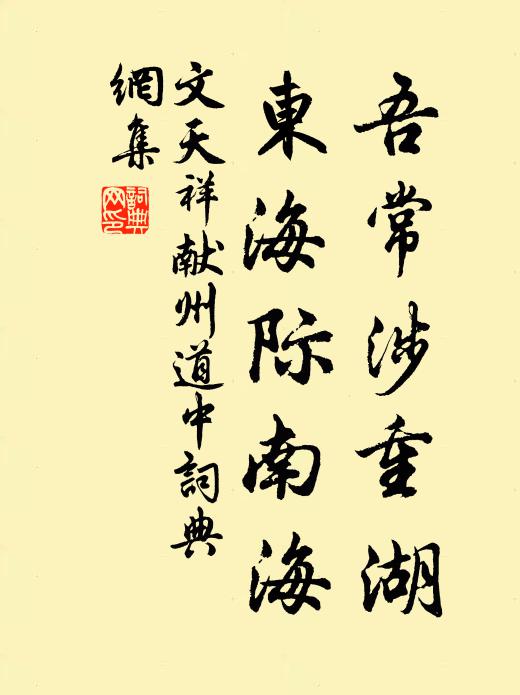 吾常涉重湖
東海际南海
文天祥献州道中詞典
網集
詞典
网印